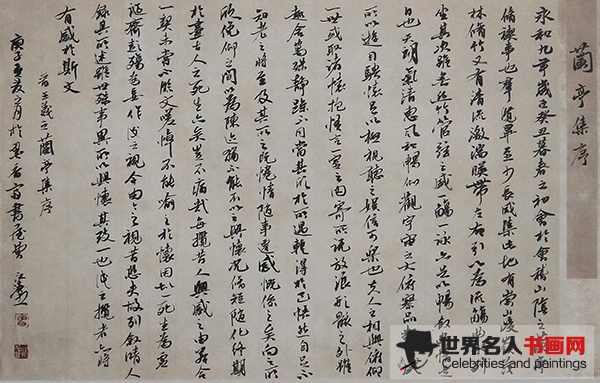 蘭亭集序
永和九年歲在癸丑暮春之初會於會稽山陰之
脩禊事也羣賢畢至少長咸集此地有崇山峻
林脩竹又有清流激湍暎帶左右引以為流觴曲
坐其次雖無絲竹管弦之盛一觴一詠亦足以暢敘幽情是
日也天朗氣清惠風和暢仰觀宇宙之大俯察品類
所以遊目騁懷足以極視聽之娛信可樂也夫人之相與俯仰
一世或取諸懷抱悟言一室之內因寄所託放浪形骸之外雖
趣舍萬殊靜躁不同當其欣於所遇暫得於己快然自足不
知老之將至及其所之既惓情隨事遷感慨係之矣向之所
欣俛仰之間以為陳迹猶不能不以之興懷況脩短隨化終期
於盡古人云死生亦大矣豈不痛哉每攬昔人興感之由若合
一契未嘗不臨文嗟悼不能喻之於懷固知一死生為虛
誕齊彭殤為妄作後之視今亦由今之視昔悲夫故列敘時人
錄其所述雖世殊事異所以興懷其致一也後之攬者亦將
有感於斯文
右王羲之蘭亭集序
庚子夏月於
世界名人书画网
Celebrities and paintings